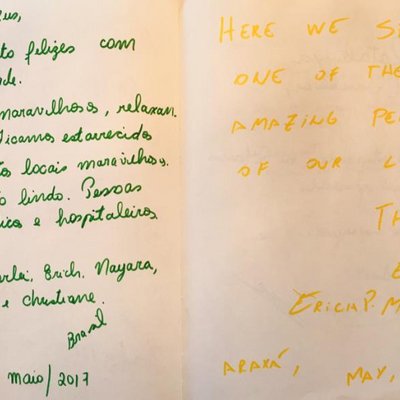 us,
to felizes com
de.
maravilhosos, relaxan
Ficamos estarrecidos
os locais maravilhosos.
o lindo. Pessoas
e hospitaleiros
Erich, Nayara,
e christiane.
Brasil
maio/2017
HERE WE S
ONE OF THE
AMAZING PE
OF OUR L
TH
ERICH P. M
ARAXÁ, MAY,